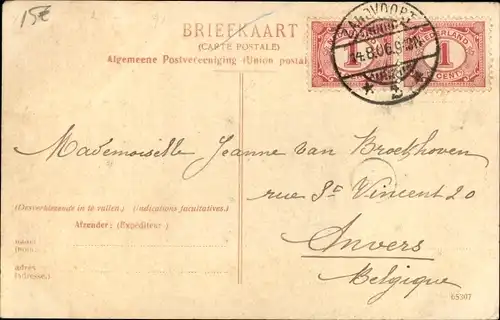 15€
BRIEFKAART
(CARTE POSTALE)
Algemeene Postvereeniging (Union postal
NEDERLAND
1 1
CENT
14.8.06.9
2
Mademoiselle Jeanne van Broekhoven
rue St Vincent 20
Anvers
Belgique
(Desverkiezende in te vullen.) (Indications facultatives.)
Afzender: (Expéditeur.)
naam
(Nom.
adres
(Adresse.)
65307